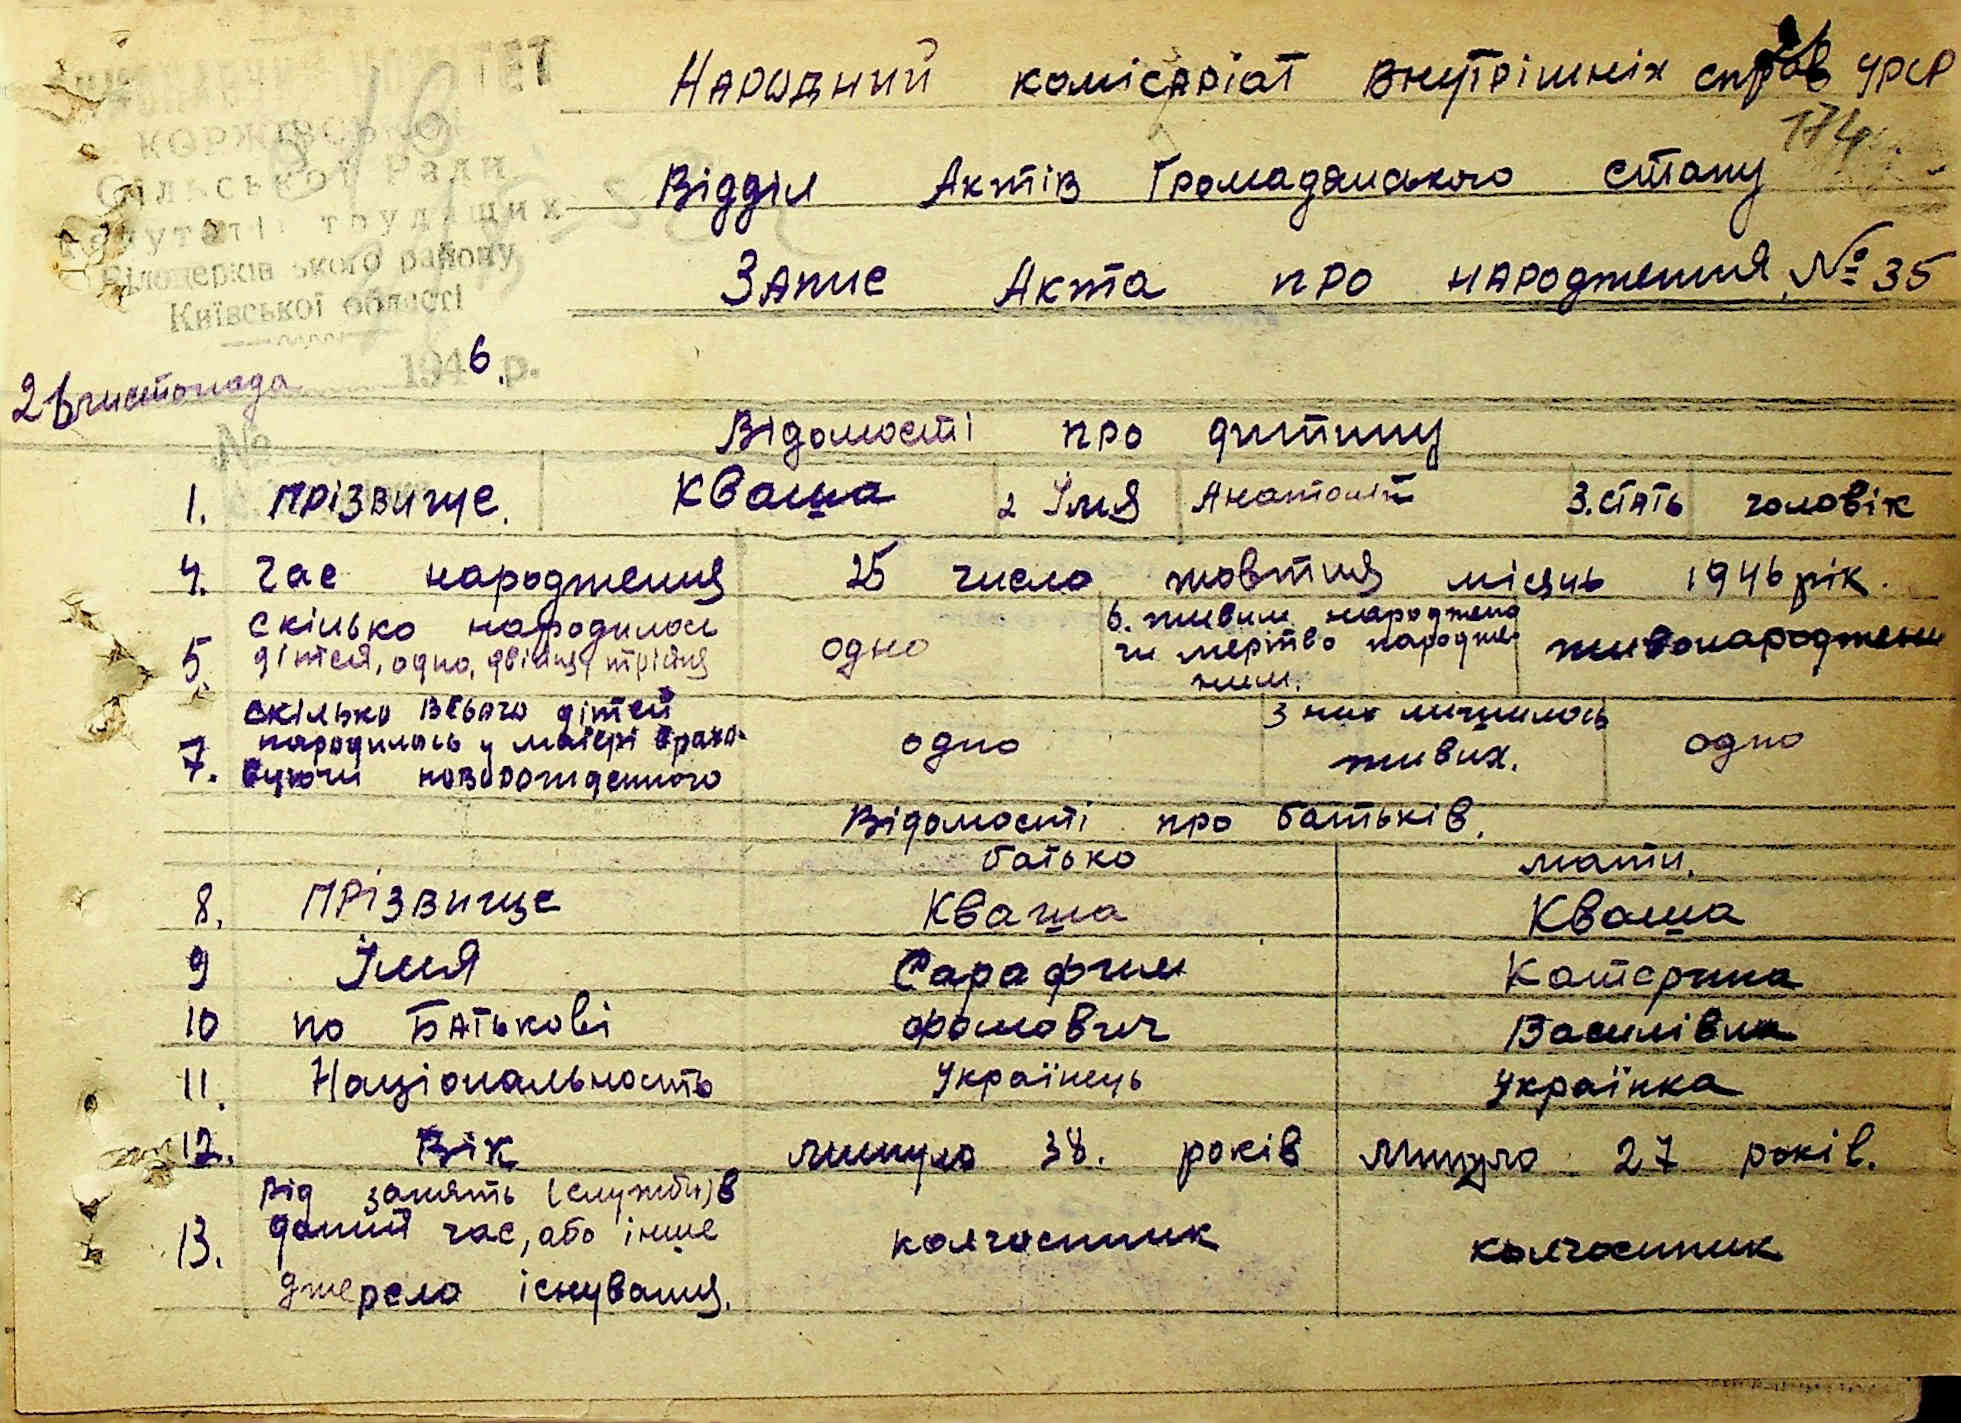 КОМІТЕТ
КОРЖІВСЬКОЇ
Сільської Ради
депутатів трудящих
Білоцерківського району
Київської області
1946 р.
2 листопада
№
Народний комісаріат Внутрішніх справ УРСР
174
Відділ Актів Громадянського стану
Запис Акта про народження № 35
Відомості про дитину
1. Прізвище. Кваша 2 Імя Анатолій 3. стать чоловік
4. Час народження 25 число жовтня місяць 1946 рік.
5. скілько народилось дітей, одно, двійня, трійня одно
6. живим народжено чи мертво народженим. живонароджени
7. скілько всього дітей народилось у матері врахо-
вуючи новорожденного одно
з них лишилось живих. одно
Відомості про батьків.
батько мати.
8. Прізвище Кваша Кваша
9 Імя Сарафим Катерина
10 по Батькові Фомович Василівна
11. Національность Українець Українка
12. Вік минуло 38. років минуло 27 років.
13. Рід занять (служби) в
даний час, або інше
джерело існування. колгоспник колгоспник